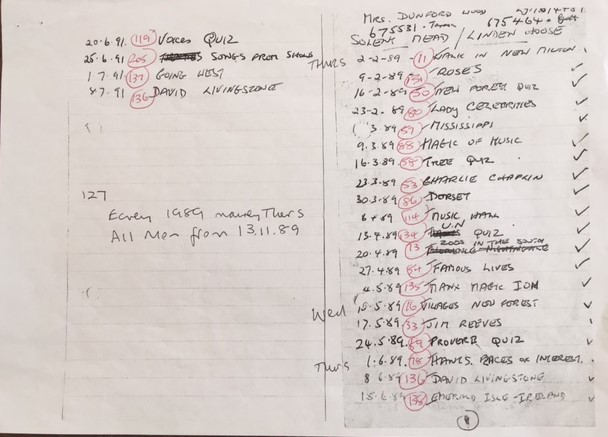 20.6.91. 119 VOICES QUIZ
25.6.91 205 SONGS FROM SHOWS
1.7.91 137 GOING WEST
8.7.91 136 DAVID LIVINGSTONE
127
Early 1989 mainly Thurs
All Mon from 13.11.89
MRS. DUNFORD WOOD
675531. 675464.
SOLENT MEAD / LINDEN HOUSE
THURS 2-2-89 11 WALK IN NEW MILTON
9-2-89 ROSES
16-2-89 50 NEW FOREST QUIZ
23-2.89 80 LADY CELEBRITIES
3.89 59 MISSISSIPPI
9.3.89 88 MAGIC OF MUSIC
16.3.89 58 TREE QUIZ
23.3.89 53 CHARLIE CHAPLIN
30.3.89 86 DORSET
6 4 89 114 MUSIC HALL
13.4.89 34 U.N QUIZ
20.4.89 13 ZOOS IN THE SOUTH
27.4.89 84 FAMOUS LIVES
4.5.89 135 MANX MAGIC IOM
Wed 10.5.89 16 VILAGES NEW FOREST
17.5.89 33 JIM REEVES
24.5.89. 89 PROVERB QUIZ
Thurs 1.6.89. 18 HANTS. PLACES OF INTEREST.
8 6.89 136 DAVID LIVINGSTONE
15.6.89 138 EMERALD ISLE-IRELAND